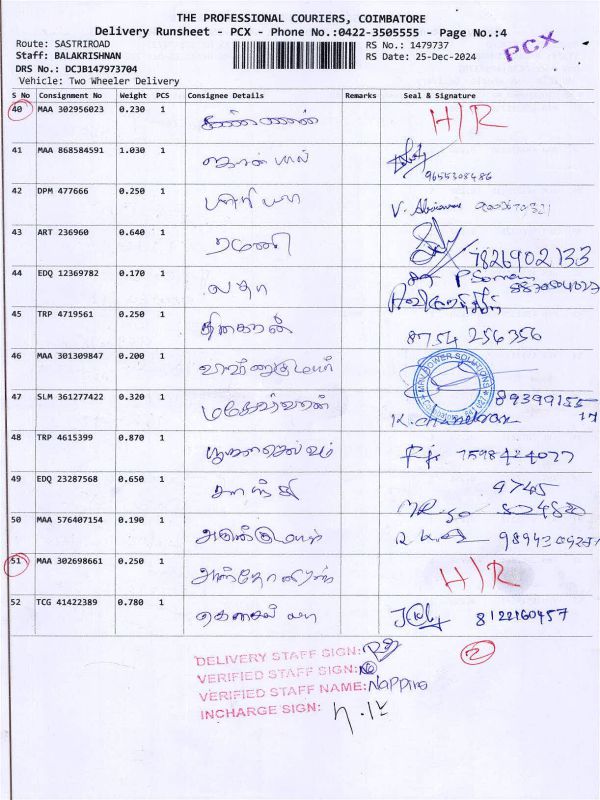 THE PROFESSIONAL COURIERS, COIMBATORE
Delivery Runsheet - PCX - Phone No.:0422-3505555 - Page No.:4
Route: SASTRIROAD RS No.: 1479737 PCX
Staff: BALAKRISHNAN RS Date: 25-Dec-2024
DRS No.: DCJB147973704
Vehicle: Two Wheeler Delivery
S No Consignment No Weight PCS Consignee Details Remarks Seal & Signature
40 MAA 302956023 0.230 1 கண்ணன் H/R
41 MAA 868584591 1.030 1 ஜான் பால் 9655308486
42 DPM 477666 0.250 1 பிரியா V.
43 ART 236960 0.640 1 ரமணி 7826902133
44 EDQ 12369782 0.170 1 லதா
45 TRP 4719561 0.250 1 தினகரன் 8754 256356
46 MAA 301309847 0.200 1 MRV POWER SOLUTIONS
47 SLM 361277422 0.320 1 மகேஸ்வரன் 89399155 17
K. chandran
48 TRP 4615399 0.870 1 7598424077
49 EDQ 23287568 0.650 1 9745
50 MAA 576407154 0.190 1 அருண்குமார்
51 MAA 302698661 0.250 1 H/R
52 TCG 41422389 0.780 1 8122160457
2
DELIVERY STAFF SIGN:
VERIFIED STAFF SIGN:
VERIFIED STAFF NAME:
INCHARGE SIGN: